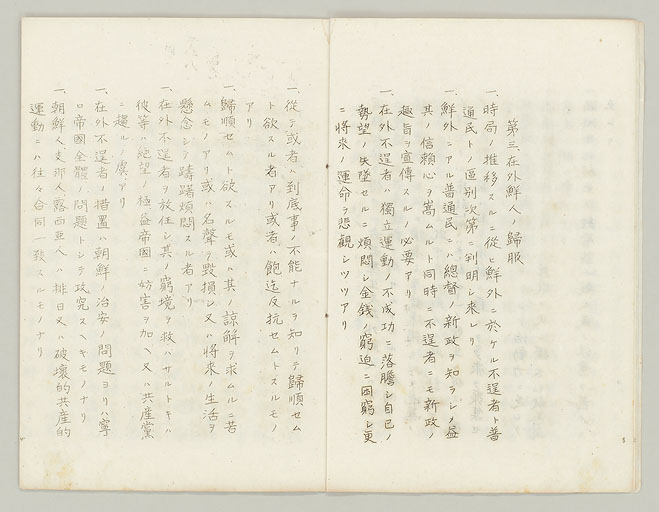 第三、在外鮮人ノ歸服
一、時局ノ推移スルニ從ヒ鮮外ニ於ケル不逞者ト普
通民トノ區別次第ニ判明シ來レリ
鮮外ニアル普通民ニハ總督ノ新政ヲ知ラシメ益
其ノ信賴心ヲ嵩ムルト同時ニ不逞者ニモ新政ノ
趣旨ヲ宣傳スルノ必要アリ
一、在外不逞者ハ獨立運動ノ不成功ニ落膽シ自己ノ
勢望ノ失墜セルニ煩悶シ金錢ノ窮迫ニ困窮シ更
ニ將來ノ運命ヲ悲觀シツツアリ
一、從テ或者ハ到底事ノ不能ナルヲ知リテ歸順セム
ト欲スル者アリ或者ハ飽迄反抗セムトスルモノ
アリ
一、歸順セムト欲スルモ或ハ其ノ諒解ヲ求ムルニ苦
ムモノアリ或ハ名聲ヲ毀損シ又ハ將來ノ生活ヲ
懸念シテ躊躇煩悶スル者アリ
一、在外不逞者ヲ放任シ其ノ窮境ヲ救ハサルトキハ
彼等ハ絶望ノ極益帝國ニ妨害ヲ加ヘ又ハ共産黨
ニ趨ルノ虞アリ
一、在外不逞者ノ措置ハ朝鮮ノ治安ノ問題ヨリハ寧
ロ帝國全體ノ問題トシテ攻究スヘキモノナリ
一、朝鮮人支那人露西亜人ハ排日又ハ破壞的共産的
運動ニハ往々合同一致スルモノナリ